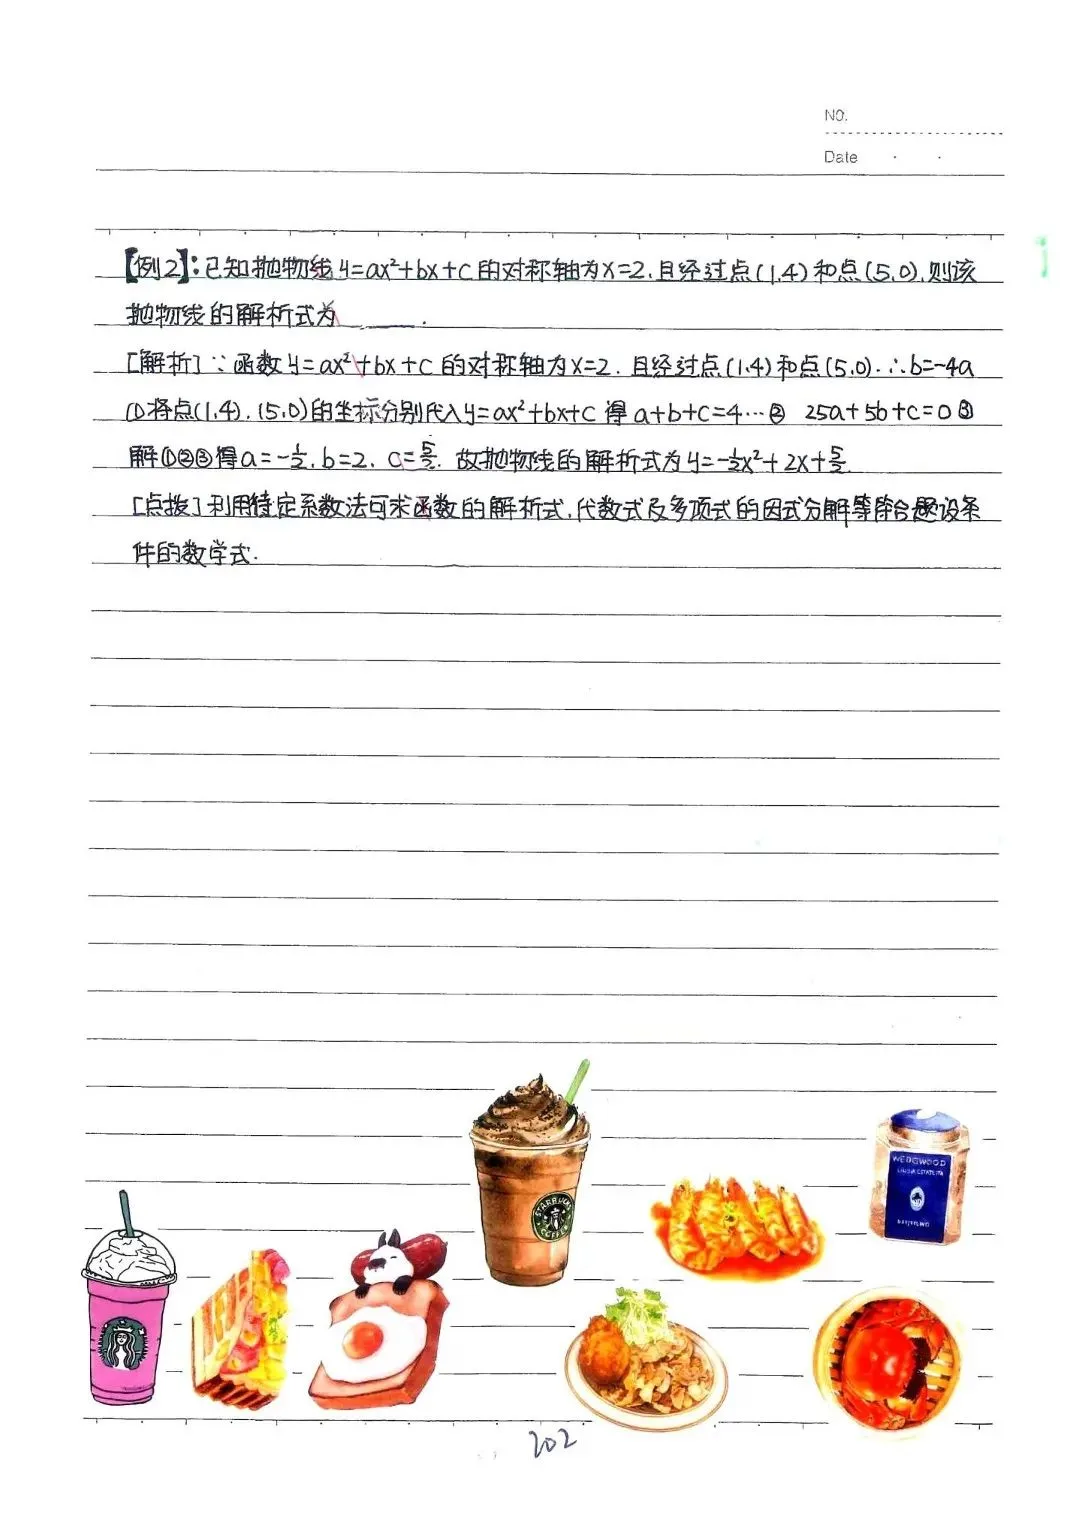 NO.
Date
【例2】:已知抛物线y=ax²+bx+c的对称轴为x=2.且经过点(1,4)和点(5,0),则该
抛物线的解析式为______.
[解析]∵函数y=ax²+bx+c的对称轴为x=2.且经过点(1,4)和点(5,0).∴b=-4a
①将点(1,4).(5,0)的坐标分别代入y=ax²+bx+c得a+b+c=4…② 25a+5b+c=0③
解①②③得a=-1/2.b=2.c=5/2.故抛物线的解析式为y=-1/2x²+2x+5/2.
[点拨]利用待定系数法可求函数的解析式.代数式及多项式的因式分解等符合题设条
件的数学式.
STARBUCKS
COFFEE
WEDGWOOD
202